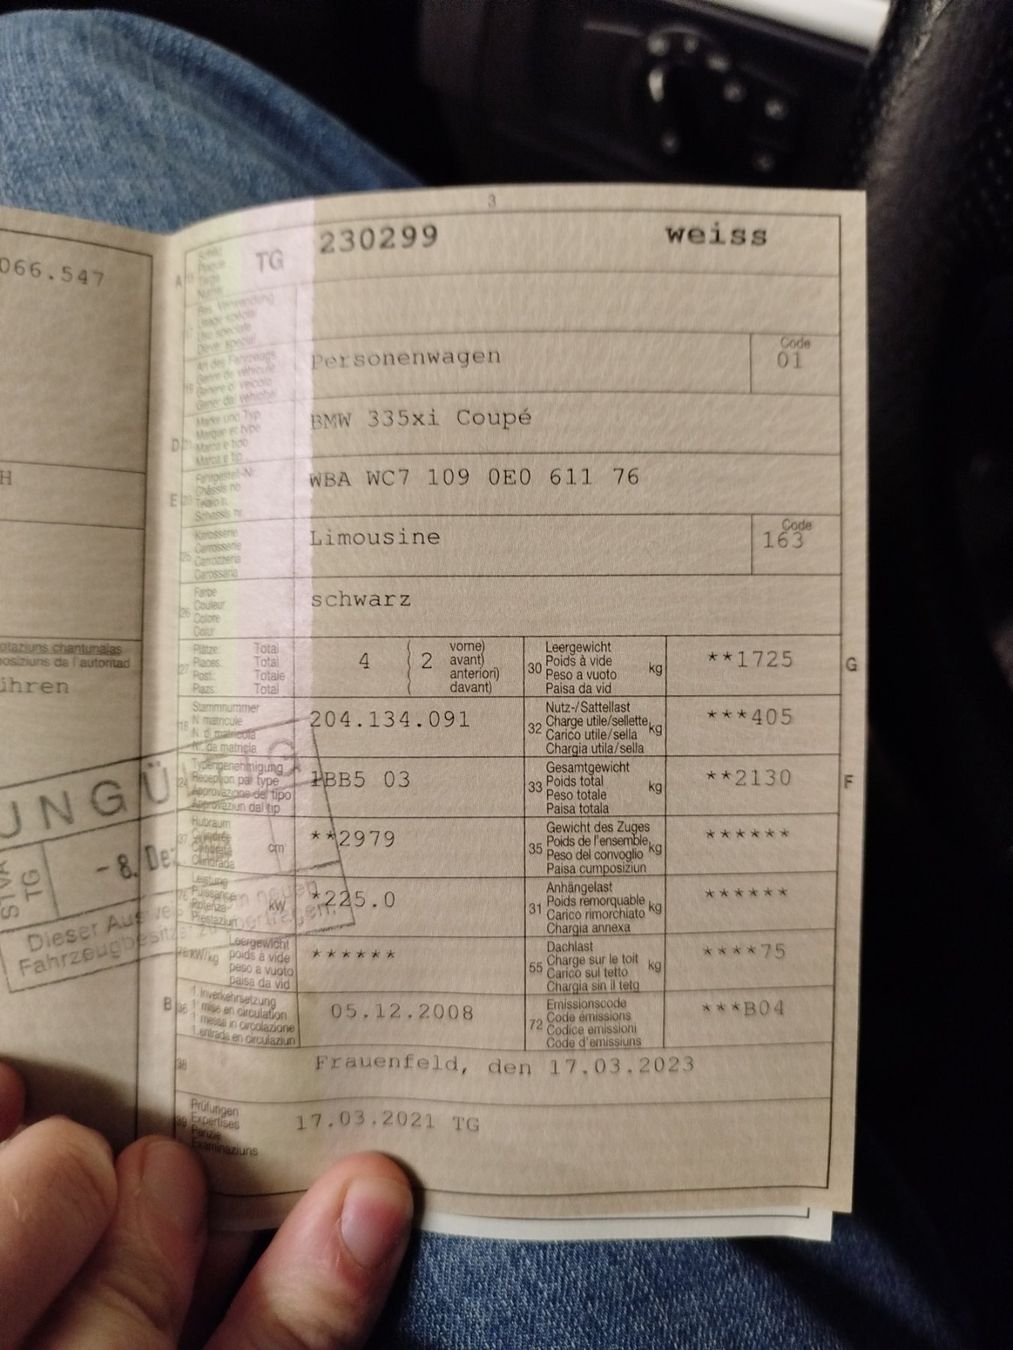 066.547
H
otaziuns chantunalas
posiziuns da l'autoritad
ühren
3
A
TG 230299 weiss
Code
Personenwagen 01
D
Marke und Typ
Marque et type
Marca e tipo
Marca e tip
BMW 335xi Coupé
E
Fahrgestell-Nr.
Châssis no
Telaio n.
Schassis nr.
WBA WC7 109 0E0 611 76
25
Karosserie
Carrosserie
Carrozzeria
Carossaria
Limousine
Code
163
26
Farbe
Couleur
Colore
Colur
schwarz
27
Plätze: Total
Places: Total
Posti: Totale
Plazs: Total
4 ( 2
vorne)
avant)
anteriori)
davant)
30
Leergewicht
Poids à vide
Peso a vuoto
Paisa da vid
kg
**1725
G
18
Stammnummer
N matricule
N. d. matricola
Nr. da matricla
204.134.091
32
Nutz-/Sattellast
Charge utile/sellette
Carico utile/sella
Chargia utila/sella
kg
***405
24
Typengenehmigung
Réception par type
Approvazione del tipo
Approvaziun dal tip
1BB5 03
33
Gesamtgewicht
Poids total
Peso totale
Paisa totala
kg
**2130
F
37
Hubraum
cm³
**2979
35
Gewicht des Zuges
Poids de l'ensemble
Peso del convoglio
Paisa cumposiziun
kg
******
76
Leistung
Puissance
Potenza
Prestaziun
kW
*225.0
31
Anhängelast
Poids remorquable
Carico rimorchiato
Chargia annexa
kg
******
78
kW/kg
Leergewicht
poids à vide
peso a vuoto
paisa da vid
******
55
Dachlast
Charge sur le toit
Carico sul tetto
Chargia sin il tetg
kg
****75
B
36
1. Inverkehrsetzung
1re mise en circulation
1. messa in circolazione
1. entrada en circulaziun
05.12.2008
72
Emissionscode
Code émissions
Codice emissioni
Code d'emissiuns
***B04
38
Frauenfeld, den 17.03.2023
39
Prüfungen
Expertises
Perizie
Examinaziuns
17.03.2021 TG
UNGÜ
STVA
TG
- 8. De
Dieser Ausweis
Fahrzeugbesitzer